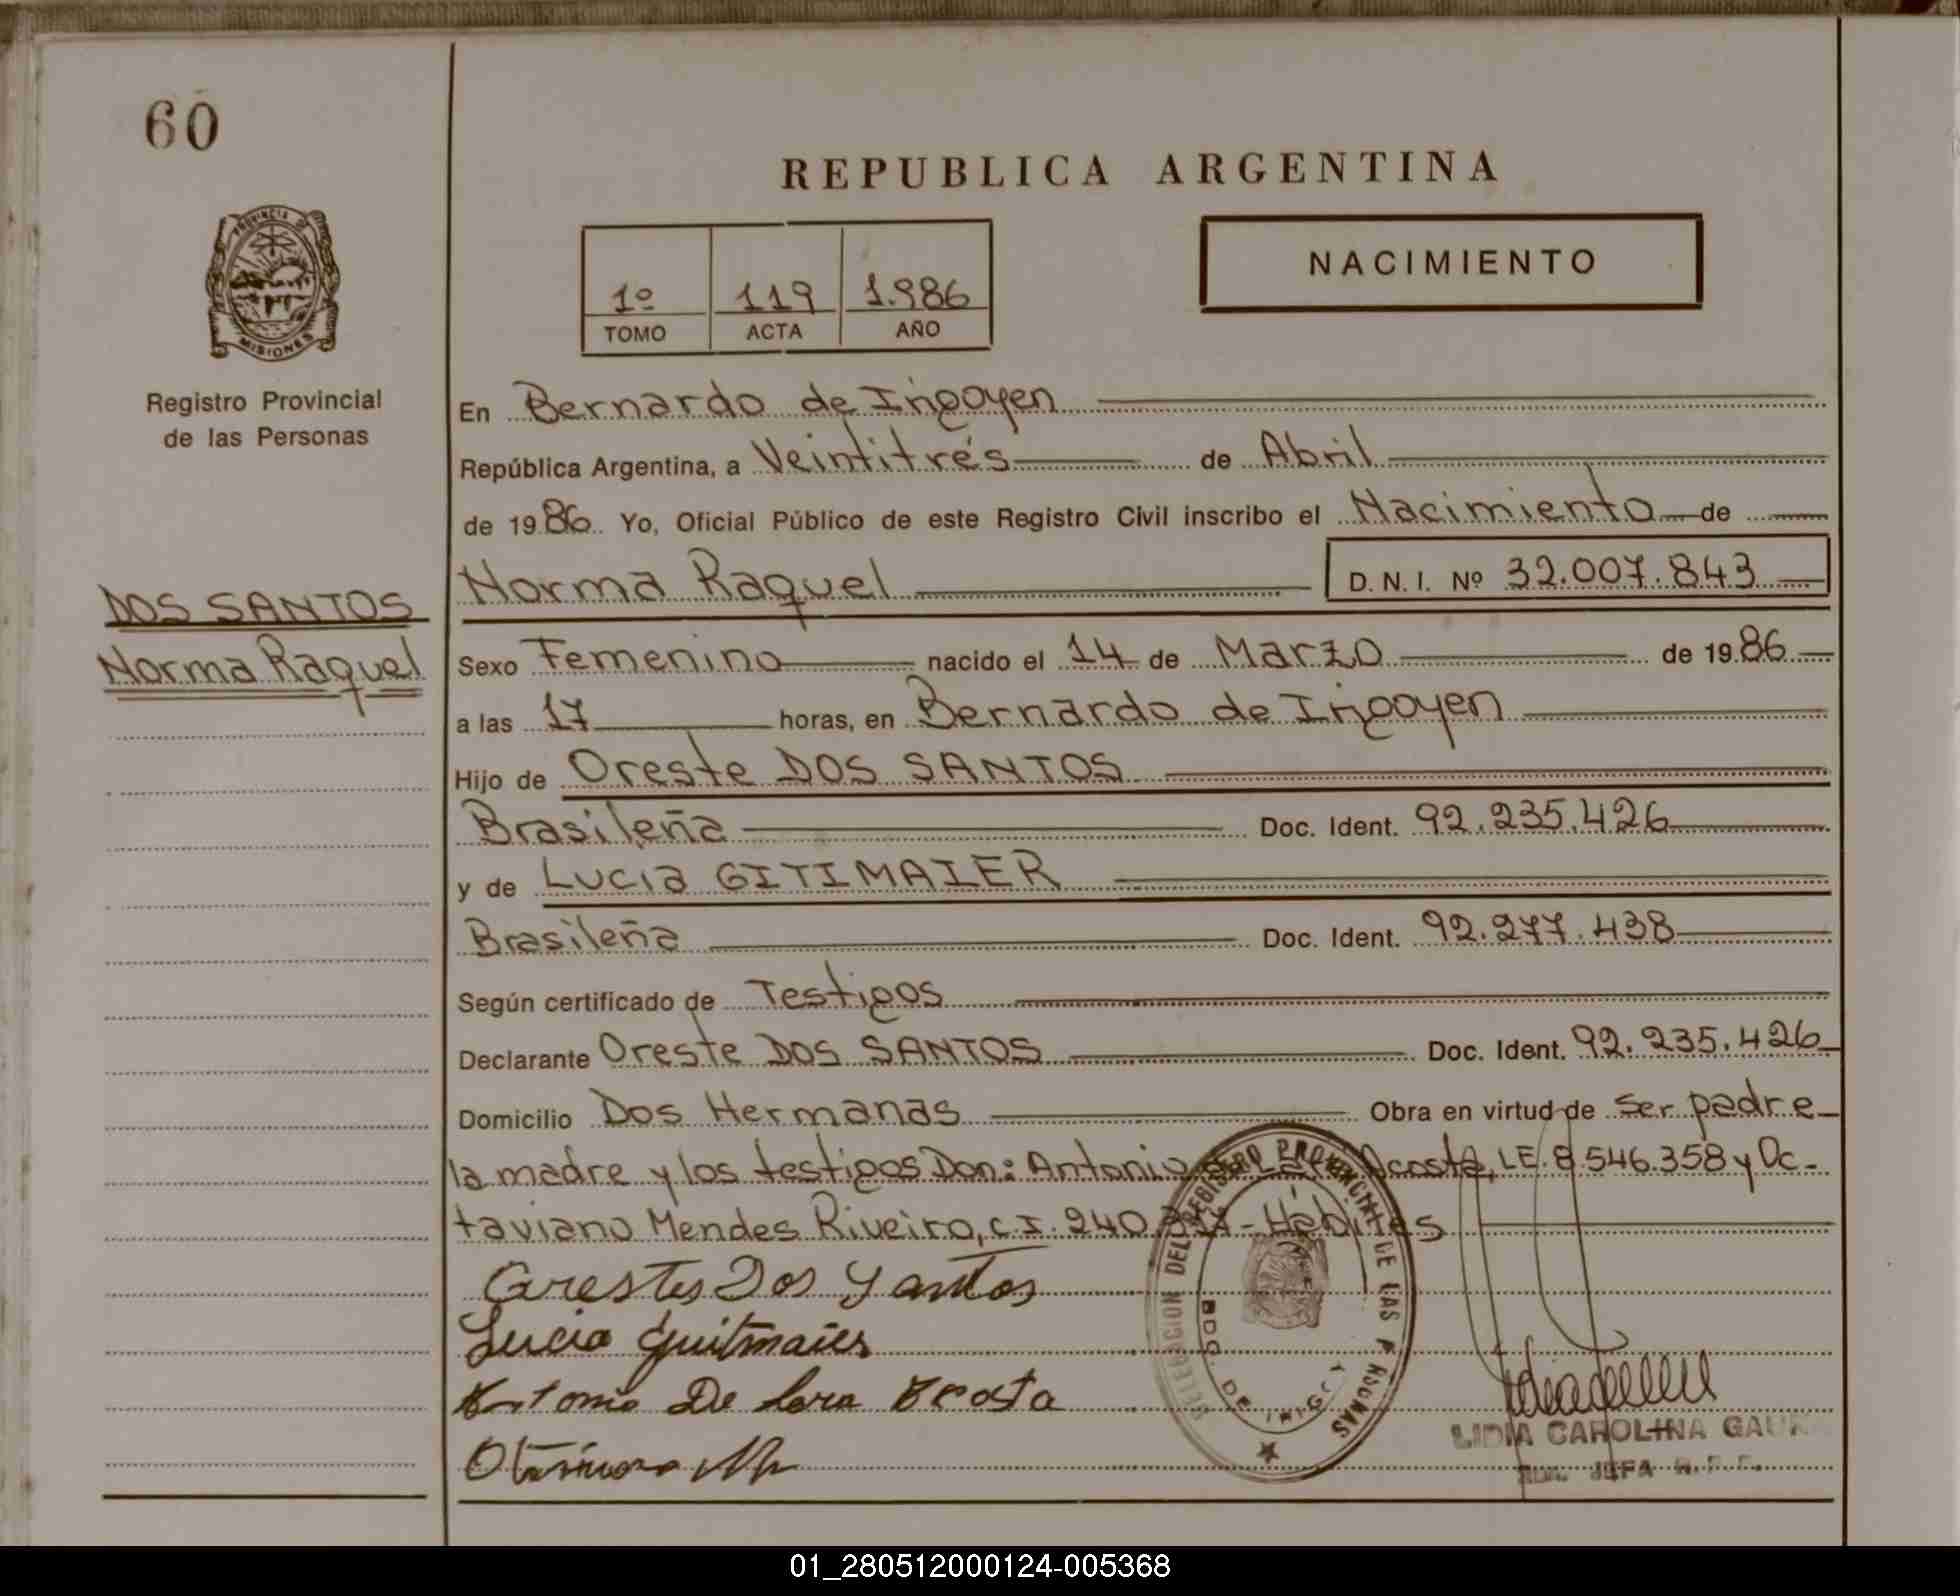 60
REPUBLICA ARGENTINA
PROVINCIA DE
MISIONES
Registro Provincial
de las Personas
1º 119 1.986
TOMO ACTA AÑO
NACIMIENTO
En Bernardo de Irigoyen
República Argentina, a Veintitrés de Abril
de 1986 Yo, Oficial Público de este Registro Civil inscribo el Nacimiento de
DOS SANTOS
Norma Raquel
Norma Raquel D.N.I. Nº 32.007.843
Sexo Femenino nacido el 14 de Marzo de 1986
a las 17 horas, en Bernardo de Irigoyen
Hijo de Oreste DOS SANTOS
Brasileña Doc. Ident. 92.235.426
y de Lucia GITIMAIER
Brasileña Doc. Ident. 92.277.438
Según certificado de Testigos
Declarante Oreste DOS SANTOS Doc. Ident. 92.235.426
Domicilio Dos Hermanas Obra en virtud de ser padre
la madre y los testigos Don: Antonio Acosta, LE. 8.546.358 y Oc-
taviano Mendes Riveiro, C.I. 240. - Hábiles
Orestes Dos Santos
Lucia Guitmaier
Antonio De Lara Acosta
DELEGACION DEL REGISTRO PROVINCIAL DE LAS PERSONAS
BDO. DE IRIGOY
LIDIA CAROLINA GAU
JEFA R.P.P.
01_280512000124-005368